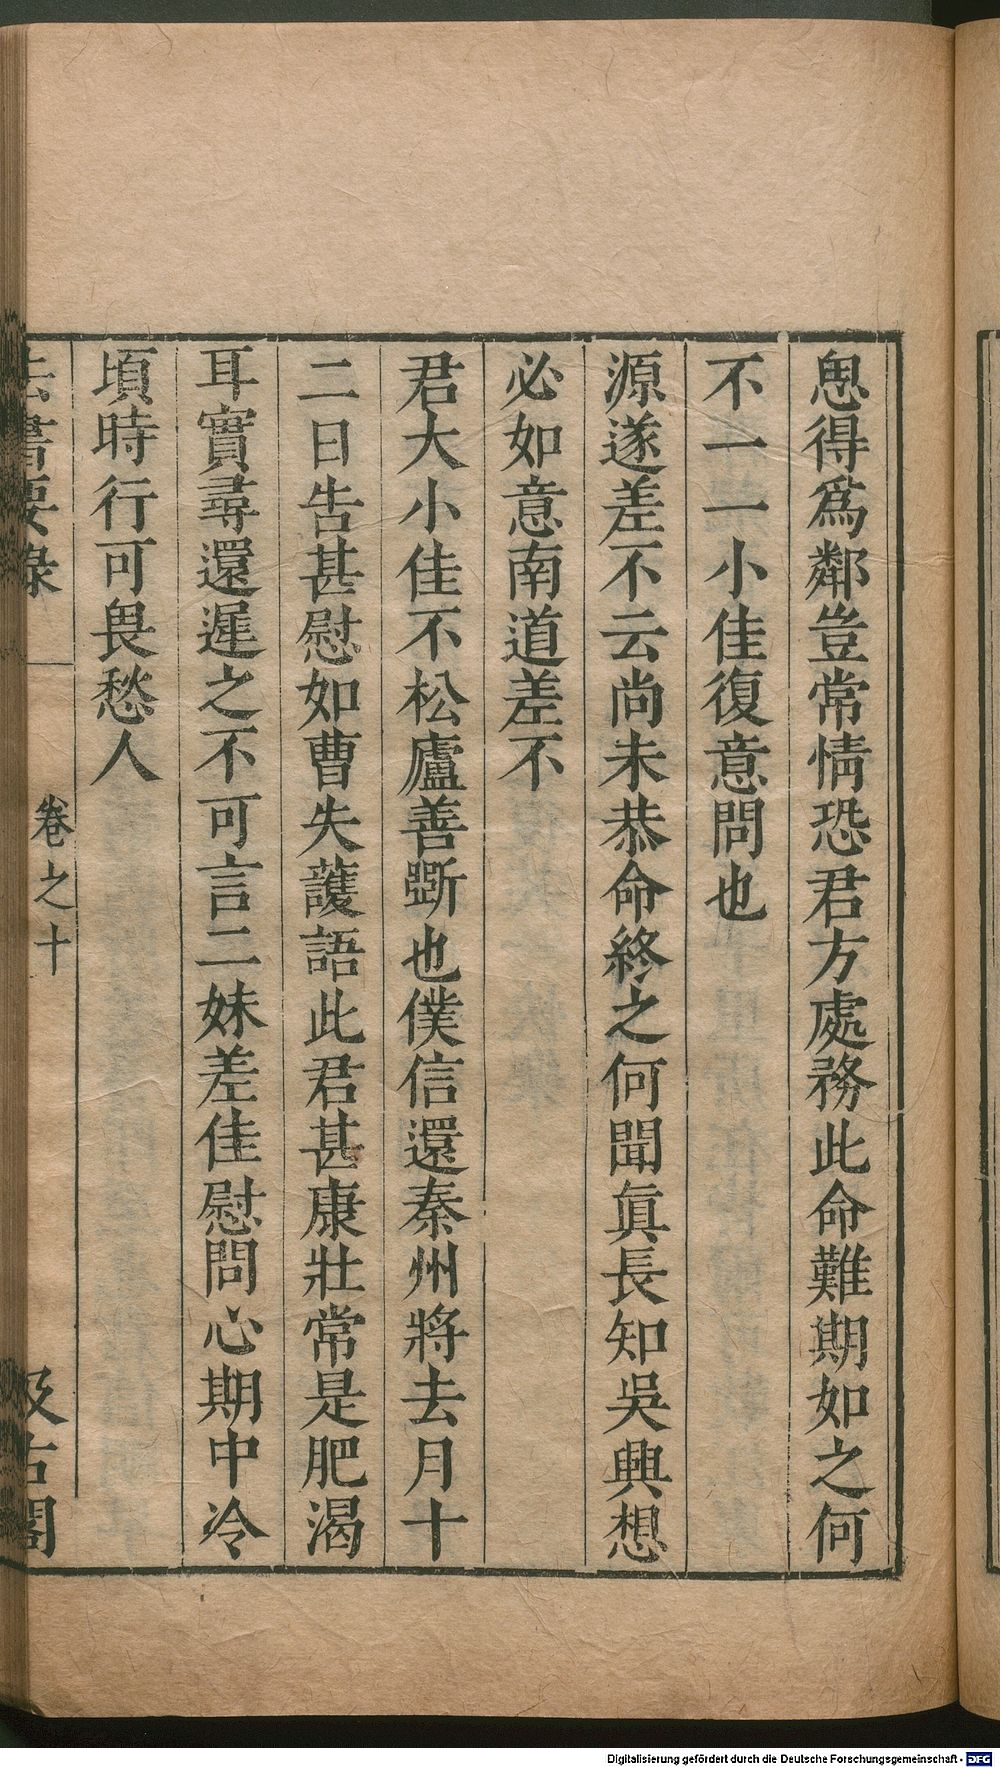 恖得爲鄰豈常情恐君方處務此命難期如之何
不一一小佳復意問也
源遂差不云尚未恭命終之何聞眞長知吳興想
必如意南道差不
君大小佳不松廬善斵也僕信還秦州將去月十
二日告甚慰如曹失護語此君甚康壯常是肥渴
耳實尋還遲之不可言二妹差佳慰問心期中冷
頃時行可畏愁人
法書要錄
卷之十
汲古閣
Digitalisierung gefördert durch die Deutsche Forschungsgemeinschaft - DFG